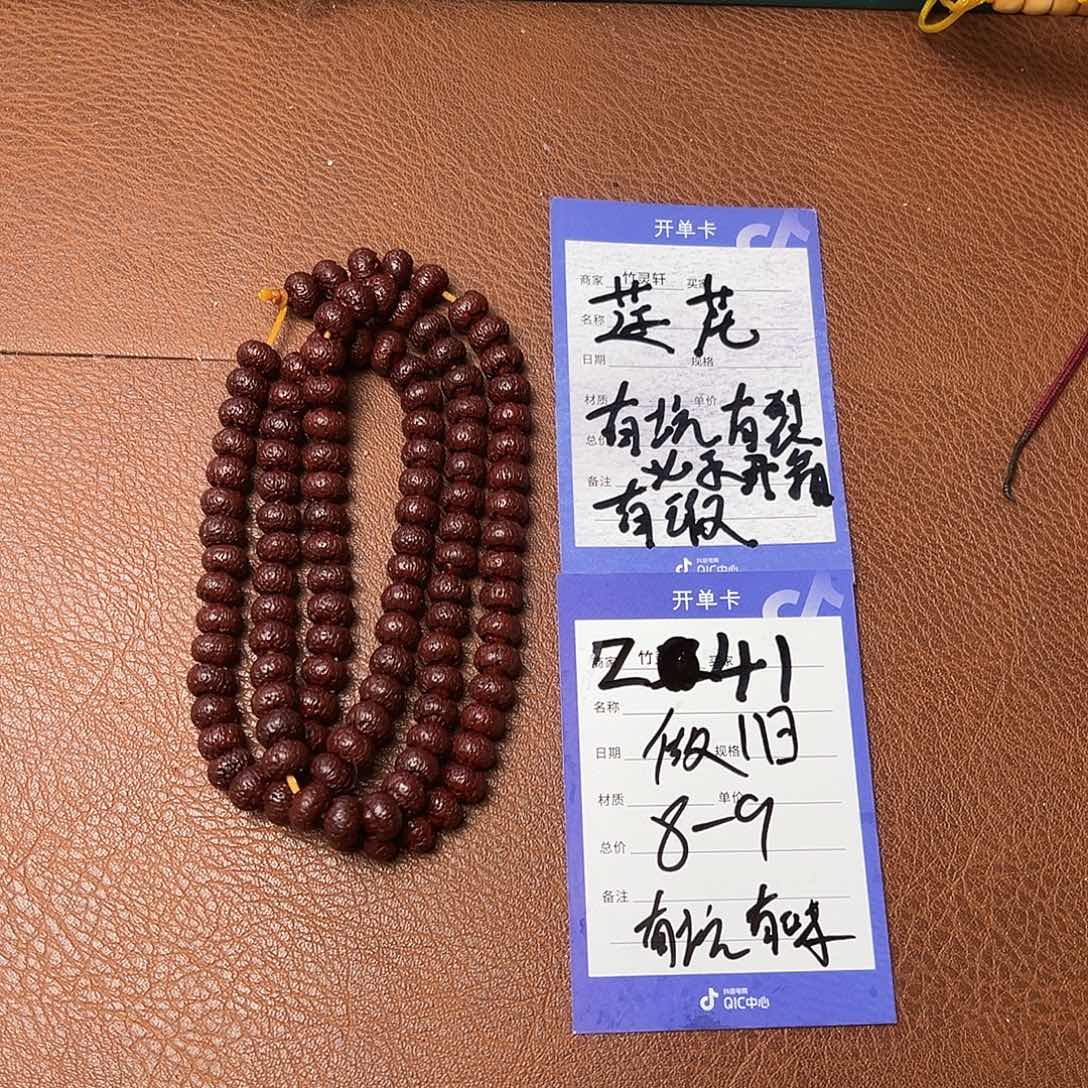 开单卡
商家 竹灵轩 买家
莲花
名称
日期 规格
材质 单价
有坑 有裂
总价
少不开翁
备注
有瑕
抖音电商
QIC中心
开单卡
商家 竹 买家
2 41
名称
做旧
日期 规格
材质 单价
8-9
总价
备注
有坑 有味
抖音电商
QIC中心